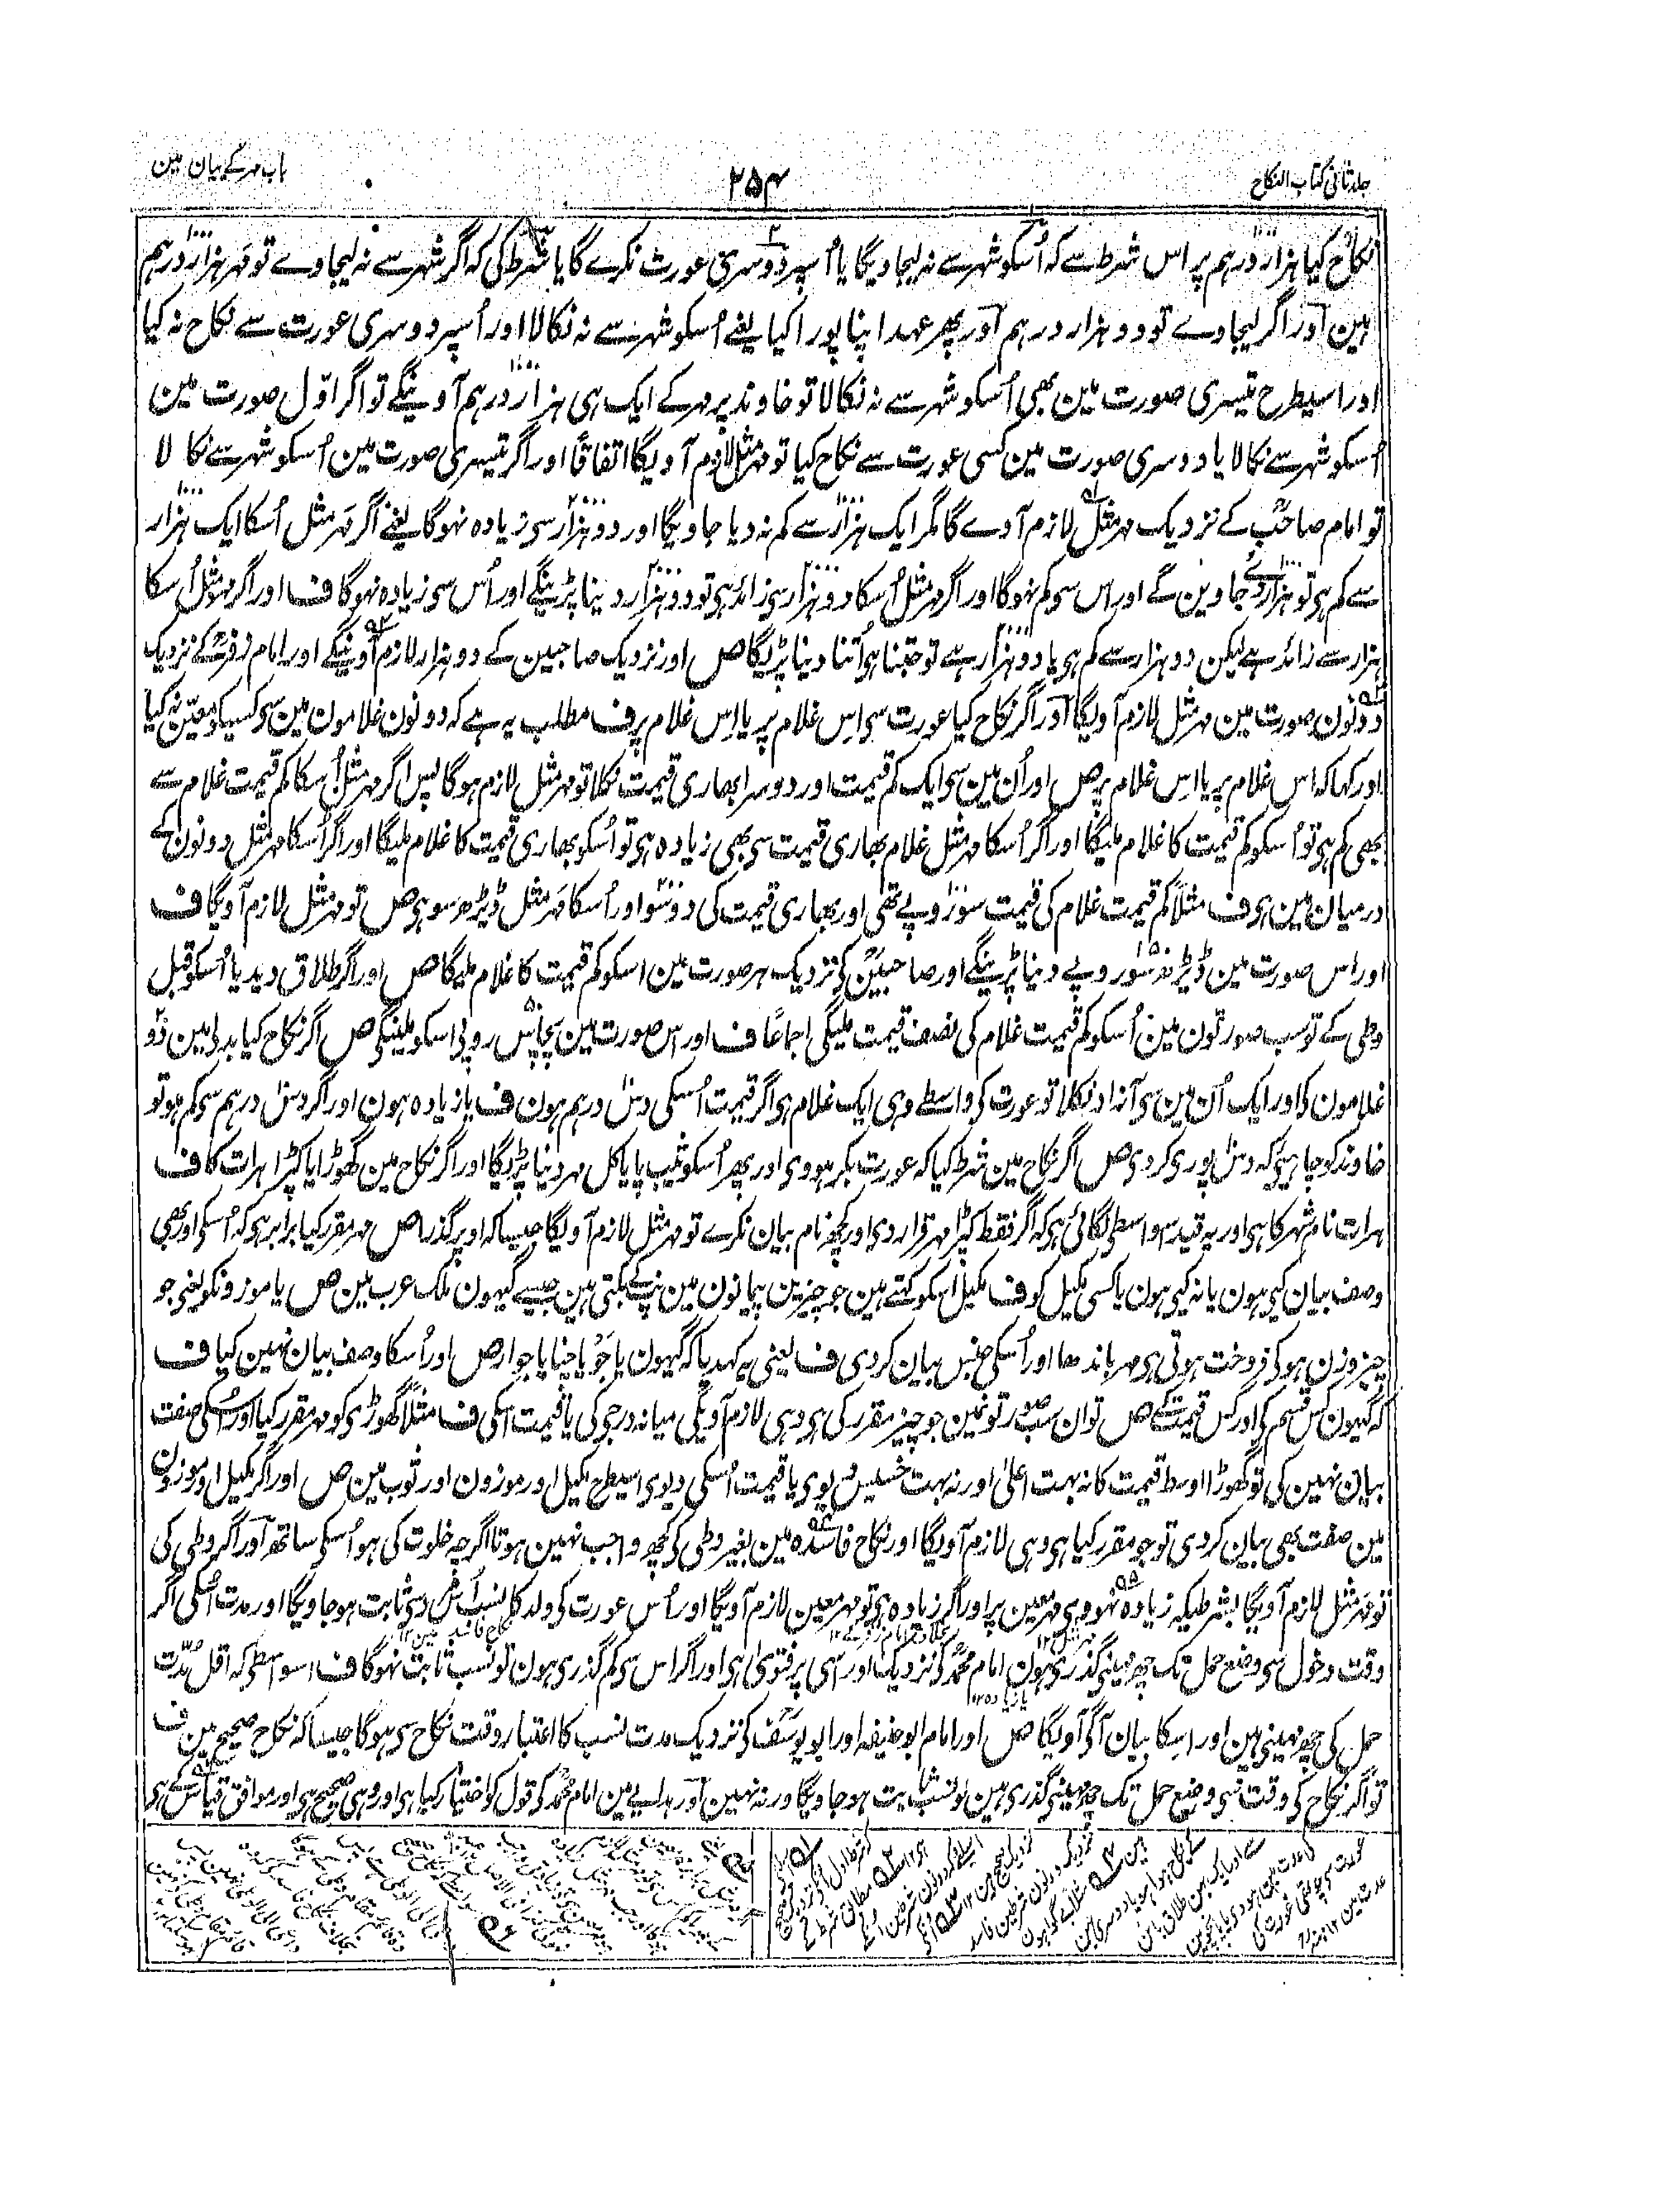 جلد ثانی کتاب النکاح
۲۵۴
باب مہر کے بیان مین
نکاح کیا ہزار درہم پر اس شرط سے کہ اُسکو شہر سے نہ لیجاویگا یا اُسپر دوسری عورت نکرے گا یا شرط کی کہ اگر شہر سے نہ لیجاوے تو مہر ہزار درہم
ہین اور اگر لیجاوے تو دو ہزار درہم اور پھر عہد اپنا پورا کیا یعنے اُسکو شہر سے نہ نکالا اور اُسپر دوسری عورت سے نکاح نہ کیا
اور اسیطرح تیسری صورت مین بھی اُسکو شہر سے نہ نکالا تو خاوند پر مہر کے ایک ہی ہزار درہم آوینگے تو اگر اوّل صورت مین
اُسکو شہر سے نکالا یا دوسری صورت مین کسی عورت سے نکاح کیا تو مہر مثل لازم آویگا اتفاقاً اور اگر تیسری صورت مین اُسکو شہر سے نکا لا
تو امام صاحبؒ کے نزدیک مہر مثل لازم آوے گا مگر ایک ہزار سے کم نہ دیا جاویگا اور دو ہزار سی زیادہ نہوگا یعنے اگر مہر مثل اُسکا ایک ہزار
سے کم ہی تو ہزار دئے جاوین گے اور اس سی کم نہوگا اور اگر مہر مثل اُسکا دو ہزار سی زائد ہی تو دو ہزار دینا پڑینگے اور اُس سی زیادہ نہوگا ف اور اگر مہر مثل اُسکا
ہزار سے زائد ہے لیکن دو ہزار سے کم ہی یا دو ہزار ہے تو جتنا ہی اُتنا دینا پڑیگا ص اور نزدیک صاحبین کے دو ہزار لازم آوینگے اور امام زفرؒ کے نزدیک
دونون صورت مین مہر مثل لازم آویگا اور اگر نکاح کیا عورت سی اس غلام پر یا اِس غلام پر ف مطلب یہ ہے کہ دونون غلامون مین سی کسیکو معیّن نہ کیا
اور کہا کہ اس غلام پر یا اِس غلام پر ص اور اُن مین سی ایک کم قیمت اور دوسرا بھاری قیمت نکلا تو مہر مثل لازم ہوگا پس اگر مہر مثل اُسکا کم قیمت غلام سے
بھی کم ہی تو اُسکو کم قیمت کا غلام ملیگا اور اگر اُسکا مہر مثل غلام بھاری قیمت سی بھی زیادہ ہی تو اُسکو بھاری قیمت کا غلام ملیگا اور اگر اُسکا مہر مثل دونون کے
درمیان مین ہی ف مثلاً کم قیمت غلام کی قیمت سو روپے تھی اور بھاری قیمت کی دو سو اور اُسکا مہر مثل ڈیڑھ سو ہی ص تو مہر مثل لازم آویگا ف
اور اس صورت مین ڈیڑھ سو روپے دینا پڑینگے اور صاحبینؒ کی نزدیک ہر صورت مین اسکو کم قیمت کا غلام ملیگا ص اور اگر طلاق دیدیا اُسکو قبل
وطی کے تو سب صورتون مین اُسکو کم قیمت غلام کی نصف قیمت ملیگی اجماعاً ف اور اس صورت مین پچاس روپی اسکو ملینگی ص اگر نکاح کیا بدلی مین دو
غلامون کی اور ایک اُن مین سی آزاد نکلا تو عورت کی واسطے وہی ایک غلام ہی اگر قیمت اُسکی دس درہم ہون ف یا زیادہ ہون اور اگر دس درہم سی کم ہو تو
خاوند کو چاہیے کہ دس پوری کردی ص اگر نکاح مین شرط کیا کہ عورت بکر ہووی اور پھر اُسکو ثیب پایا کل مہر دینا پڑیگا اور اگر نکاح مین گھوڑا یا کپڑا ہرات کا ف
ہرات نام شہر کا ہی اور یہ قید اسواسطی لگائی ہی کہ اگر فقط کپڑا مہر قرار دی اور کچھ نام بیان نکرے تو مہر مثل لازم آویگا جیسا کہ اوپر گذرا ص مہر مقرر کیا برابر ہی کہ اُسکی اور بھی
وصف بیان کیی ہون یا نہ کیی ہون یا کسی مکیل کو ف مکیل اُسکو کہتے ہین جو چیزین پیمانون مین نپ کے بکتی ہین جیسے گیہون ملک عرب مین ص یا موزونکو یعنی جو
چیز وزن ہو کی فروخت ہوتی ہی مہر باندھا اور اُسکی جنس بیان کردی ف یعنی یہ کہدیا کہ گیہون یا جَو یا چنا یا جوار ص اور اُسکا وصف بیان نہین کیا ف
کہ گیہون کس قسم کی اور کس قیمت کے ص تو ان سب صورتونمین جو چیز مقرر کی ہی وہی لازم آویگی میانہ درجی کی یا قیمت اسکی ف مثلاً گھوڑی کو مہر مقرر کیا اور اُسکی صفت
بیان نہین کی تو گھوڑا اوسط قیمت کا نہ بہت اعلیٰ اور نہ بہت خسیس لیوی یا قیمت اُسکی دیوی اسیطرح مکیل اور موزون اور ثوب مین ص اور اگر مکیل اور موزون
مین صفت بھی بیان کردی تو جو مقرر کیا ہی وہی لازم آویگا اور نکاح فاسدہ مین بغیر وطی کی کچھ واجب نہین ہوتا اگرچہ خلوت کی ہو اُسکی ساتھ اور اگر وطی کی
تو مہر مثل لازم آویگا بشرطیکہ زیادہ نہووی مہر معین پر اور اگر زیادہ ہی تو مہر معین لازم آویگا اور اُس عورت کی ولد کا نسب اُس مرد سی ثابت ہوجاویگا اور مدت اُسکی اگر
وقت دخول سی وضع حمل تک چھ مہینی گذری ہون امام محمدؒ کی نزدیک اور اسی پر فتویٰ ہی اور اگر اس سی کم گذری ہون تو نسب ثابت نہوگا ف اسواسطی کہ اقل مُدّت
حمل کی چھ مہینی ہین اور اسکا بیان آگی آویگا ص اور امام ابوحنیفہ اور ابویوسفؒ کی نزدیک مدت نسب کا اعتبار وقت نکاح سی ہوگا جیسا کہ نکاح صحیح مین ف
تو اگر نکاح کی وقت سی وضع حمل تک چھ مہینی گذری ہین تو نسب ثابت ہوجاویگا ورنہ نہین اور ہدایے مین امام محمدؒ کی قول کو اختیار کیا ہی اور وہی صحیح ہی اور موافق قیاس کے ہی